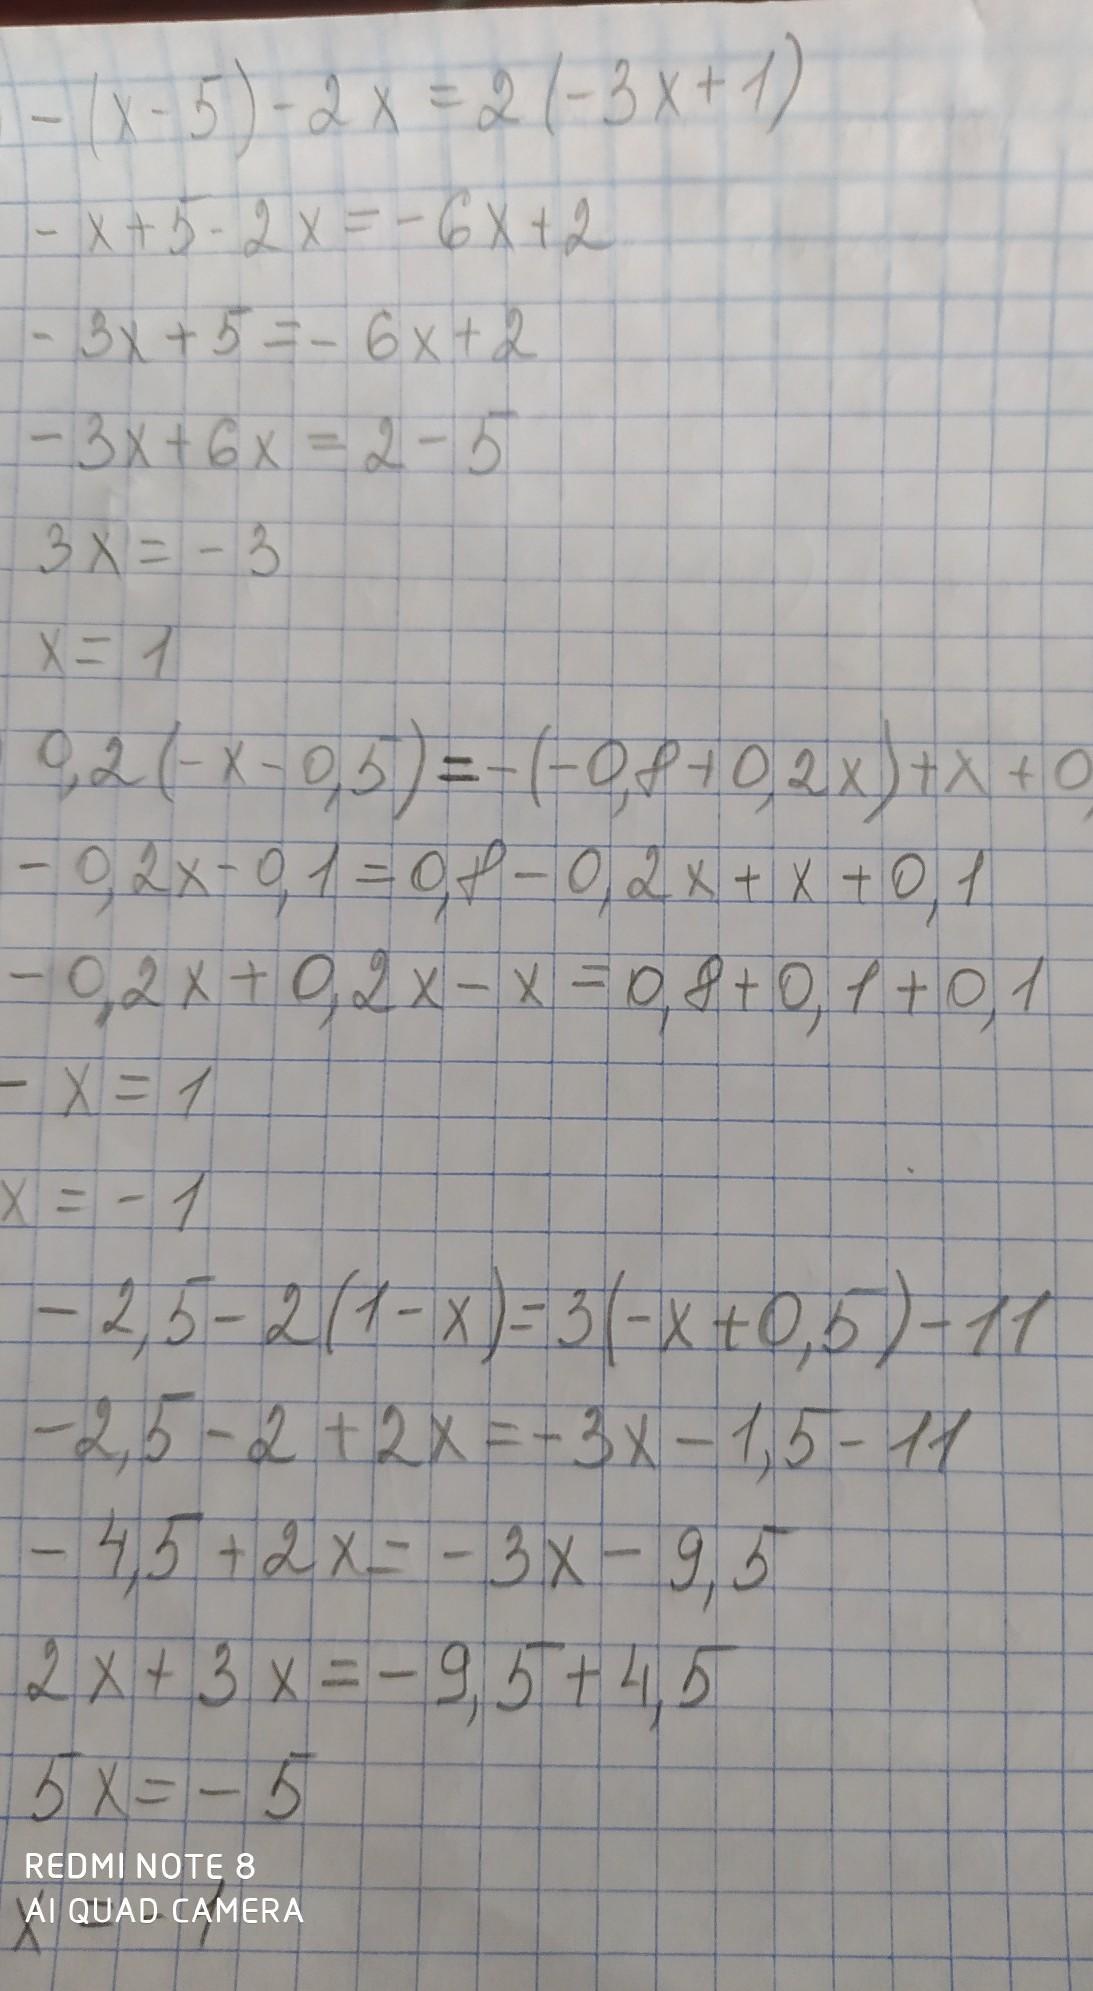 -(x-5)-2x=2(-3x+1)
-x+5-2x=-6x+2
-3x+5=-6x+2
-3x+6x=2-5
3x=-3
x=1
0,2(-x-0,5)=-(-0,8+0,2x)+x+0,
-0,2x-0,1=0,8-0,2x+x+0,1
-0,2x+0,2x-x=0,8+0,1+0,1
-x=1
x=-1
-2,5-2(1-x)=3(-x+0,5)-11
-2,5-2+2x=-3x-1,5-11
-4,5+2x=-3x-9,5
2x+3x=-9,5+4,5
5x=-5
REDMI NOTE 8
AI QUAD CAMERA
x=-1